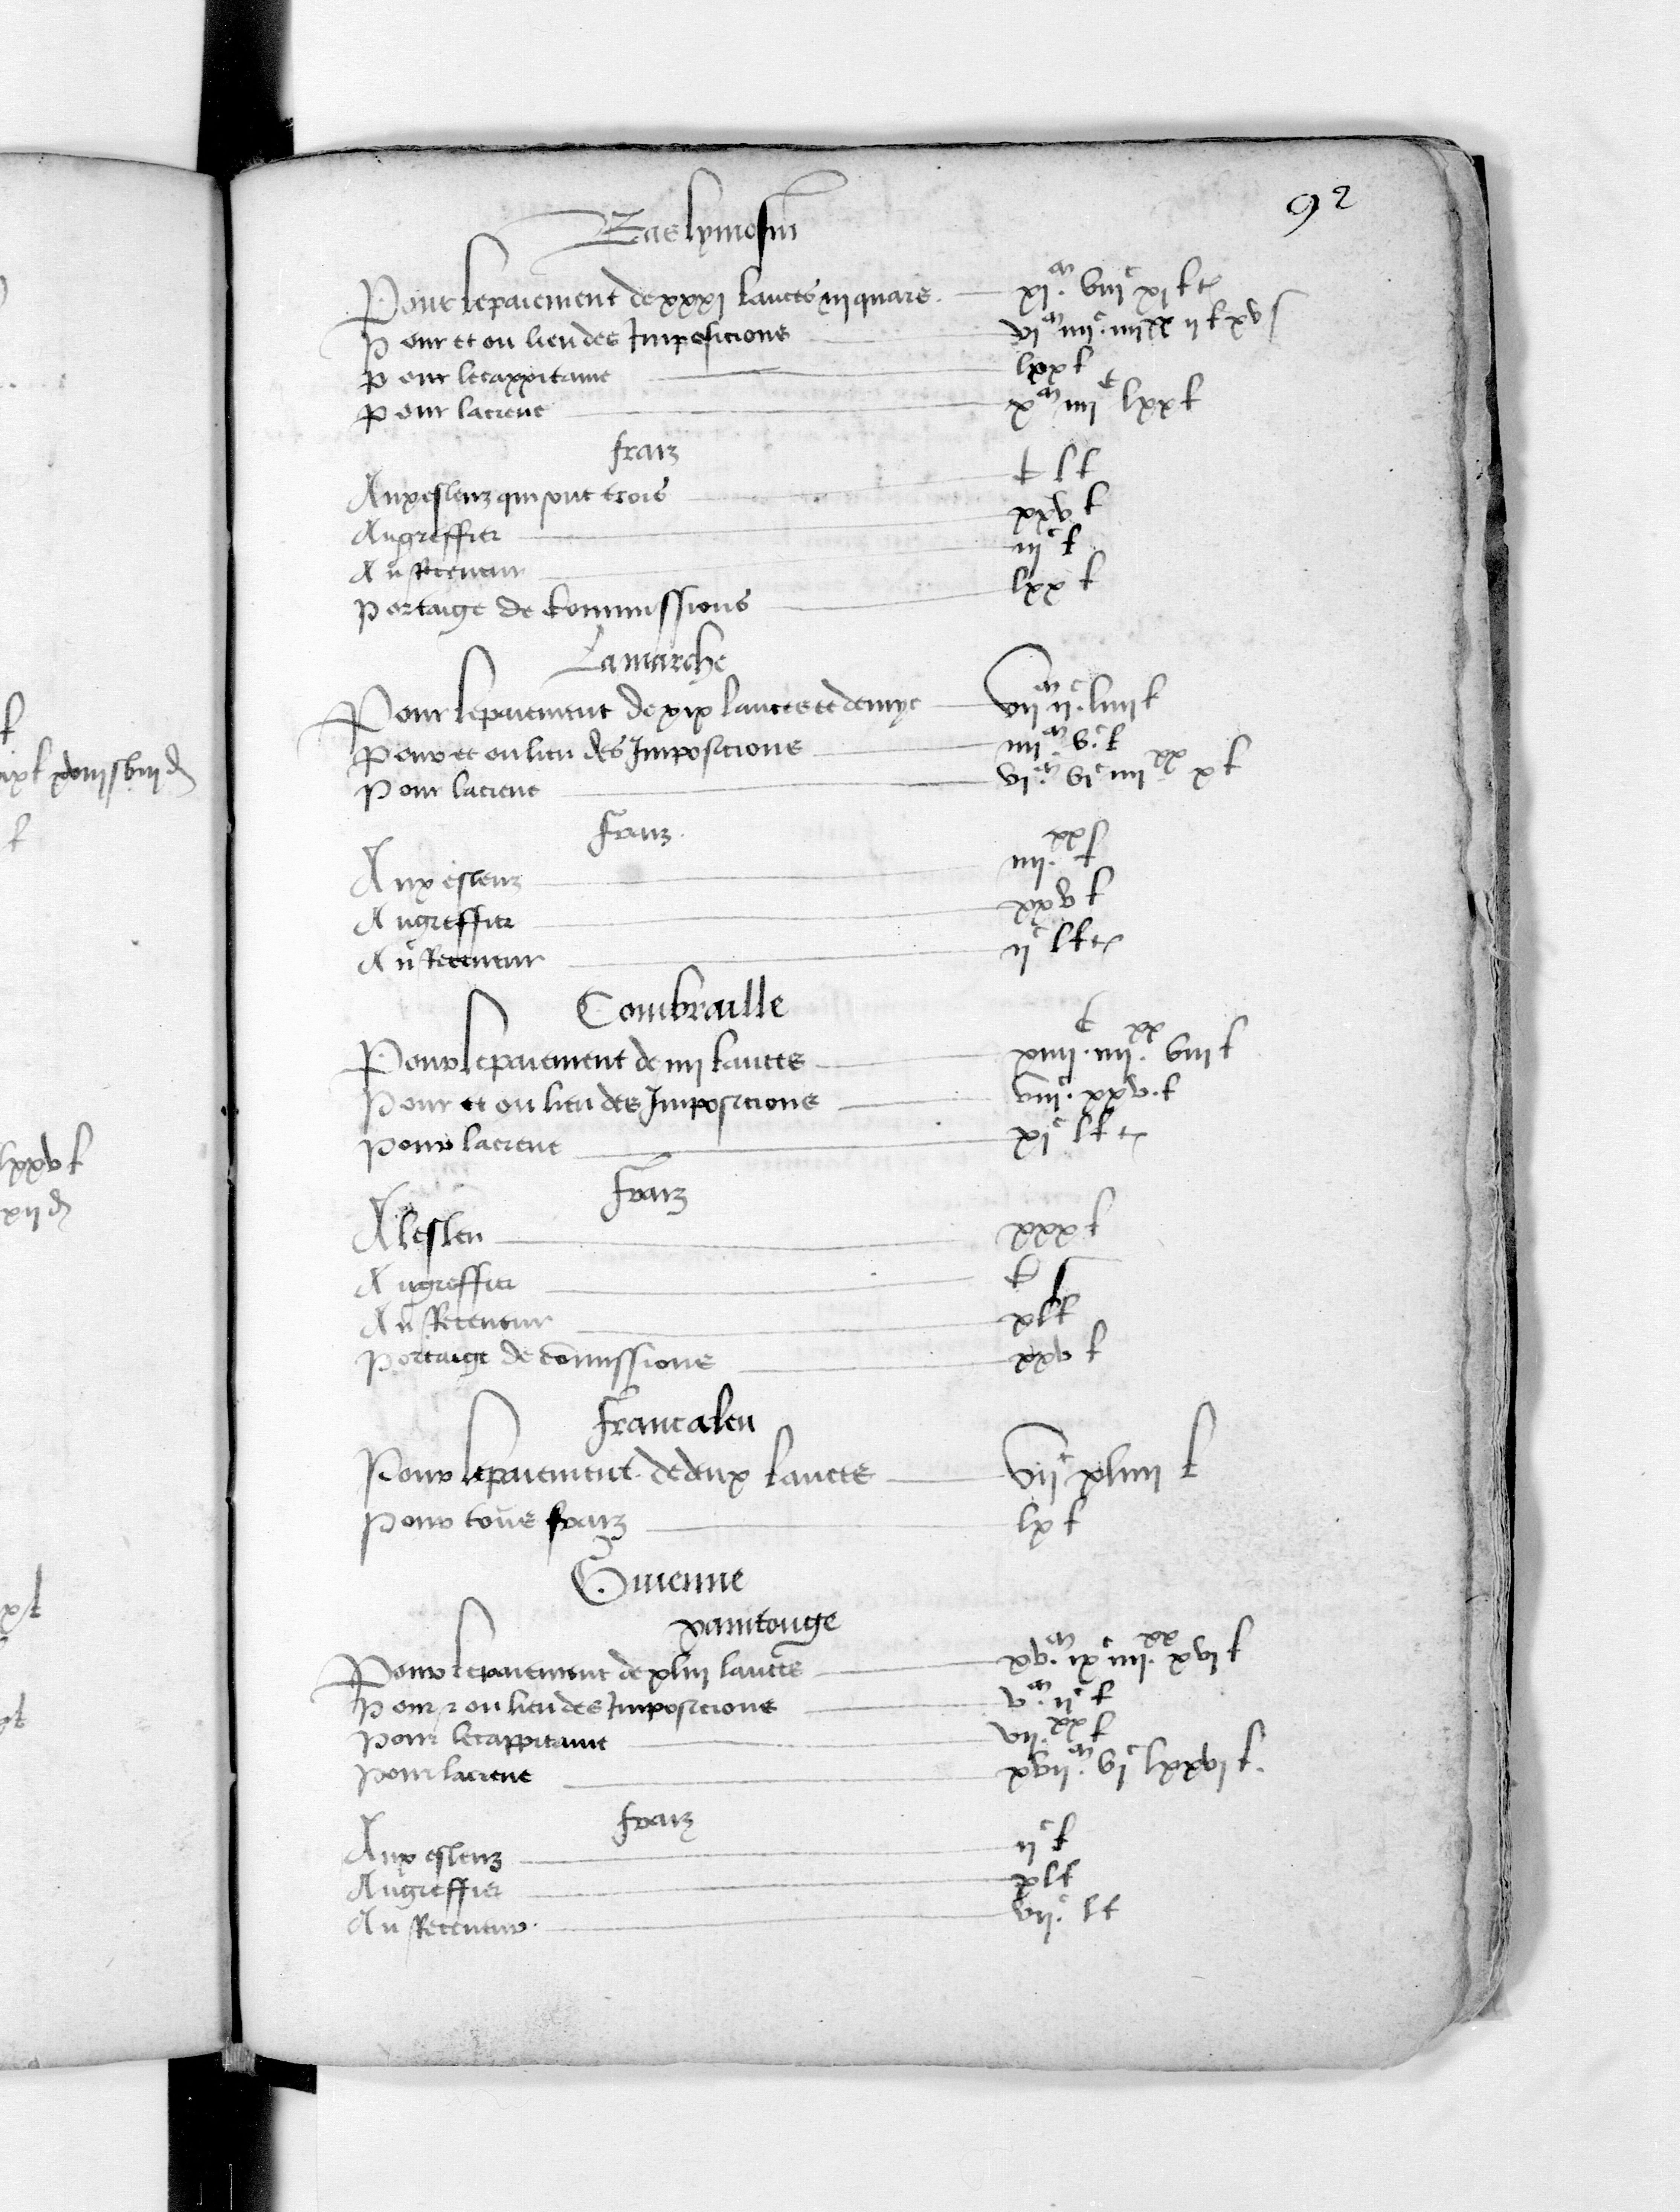 92
Bas lymosin
Pour le paiement de xxxi lances iii quars xi^m viii^c xi f t^z
Pour et ou lieu des Imposicions vi^m iiii^c iiii^xx ii f xv s
Pour le cappitaine lxx f
Pour la creue x^m iiii^c lxx f
fraiz
Aux esleuz qui sont trois c l f
Au greffier xxv f
Au Receueur iii^c f
Portaige de Commissions lxx f
La marche
Pour le paiement de xix lances et demye vii^m ii^c liiii f
Pour et ou lieu des Imposicions iiii^m v^c f
Pour la creue vi^m vi^c iiii^xx x f
fraiz
Aux esleuz iiii^xx f
Au greffier xxv f
Au Receueur ii^c l f t^z
Combraille
Pour le paiement de iiii lances xiiii^c iiii^xx viii f
Pour et ou lieu des Imposicions viii^c xxv f
Pour la creue xi^c l f t^z
fraiz
A lesleu xxx f
Au greffier c s
Au Receueur xl f
Portaige de commissions xxv f
Francaleu
Pour le paiement de deux lances vii^c xliiii f
Pour tous fraiz lx f
Guienne
xaintonge
Pour le paiement de xliii lances xv^m ix^c iiii^xx xvi f
Pour et ou lieu des Imposicions v^m ii^c f
Pour le cappitaine vii^xx f
Pour la creue xvii^m vi^c lxxvi f
fraiz
Aux esleuz ii^c f
Au greffier xl f
Au Receueur vii^c l f